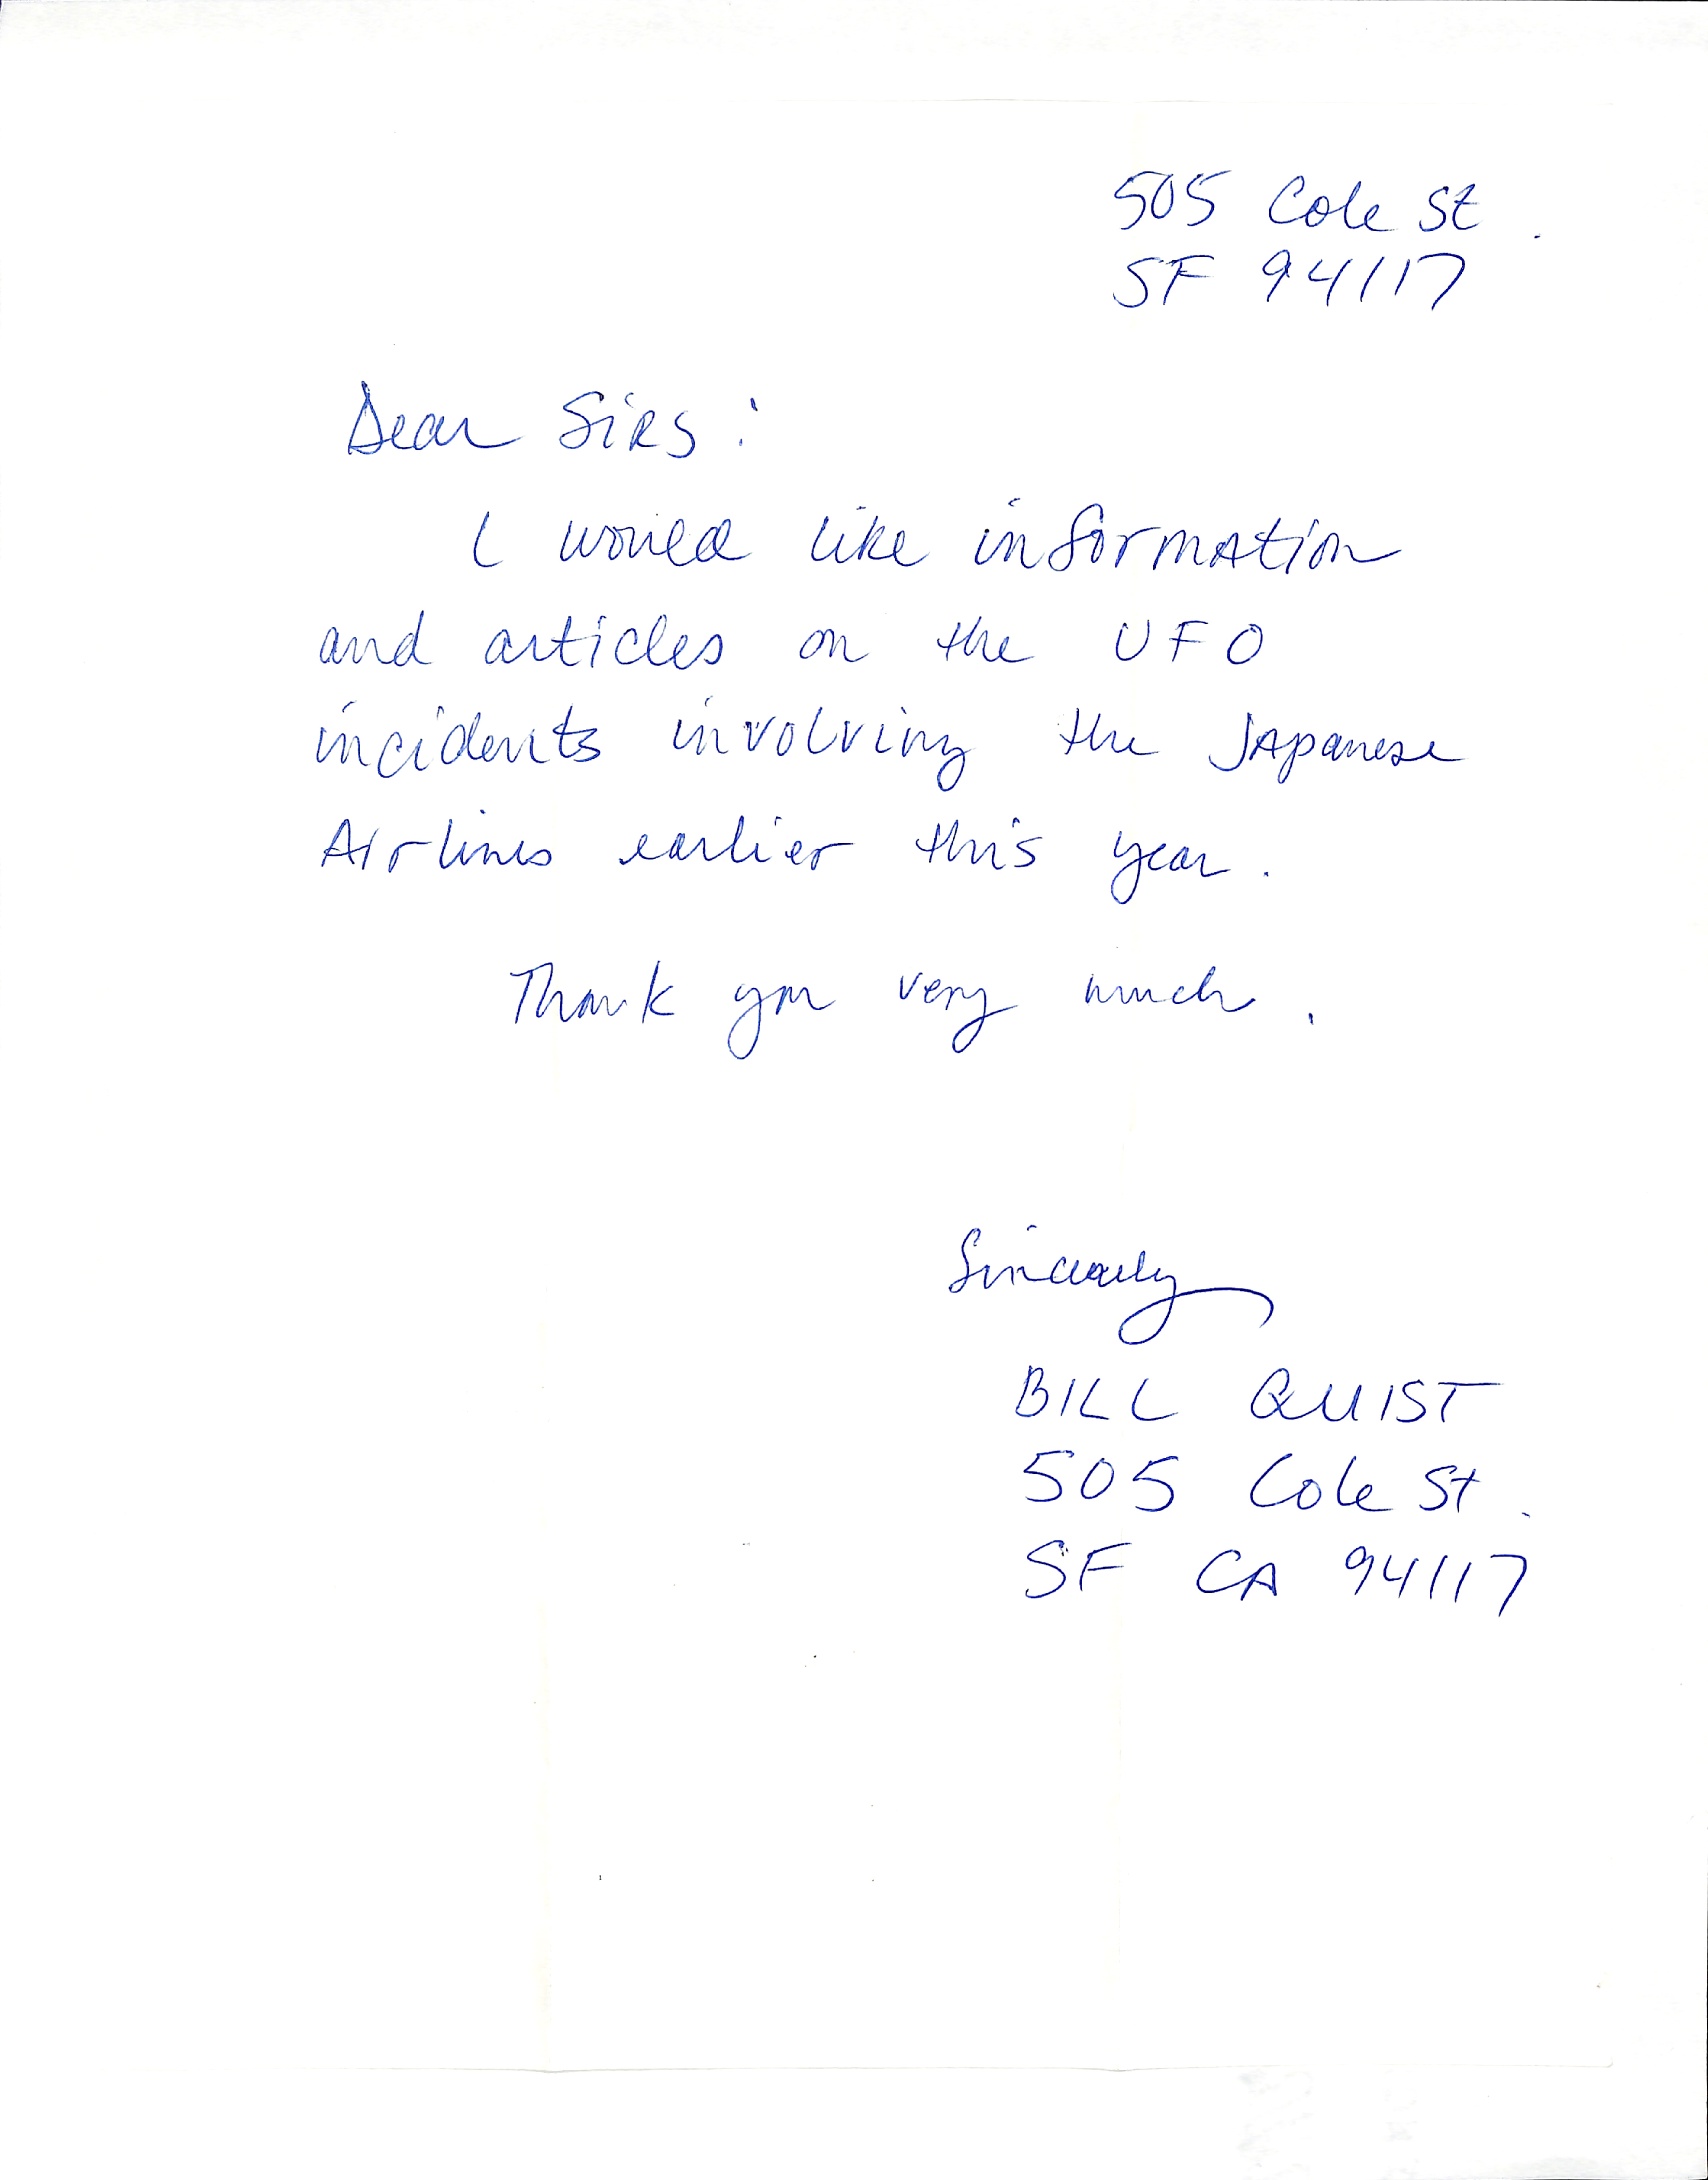 505 Cole St.
SF 94117
Dear Sirs:
I would like information
and articles on the UFO
incidents involving the Japanese
Airlines earlier this year.
Thank you very much.
Sincerely
BILL QUIST
505 Cole St.
SF CA 94117